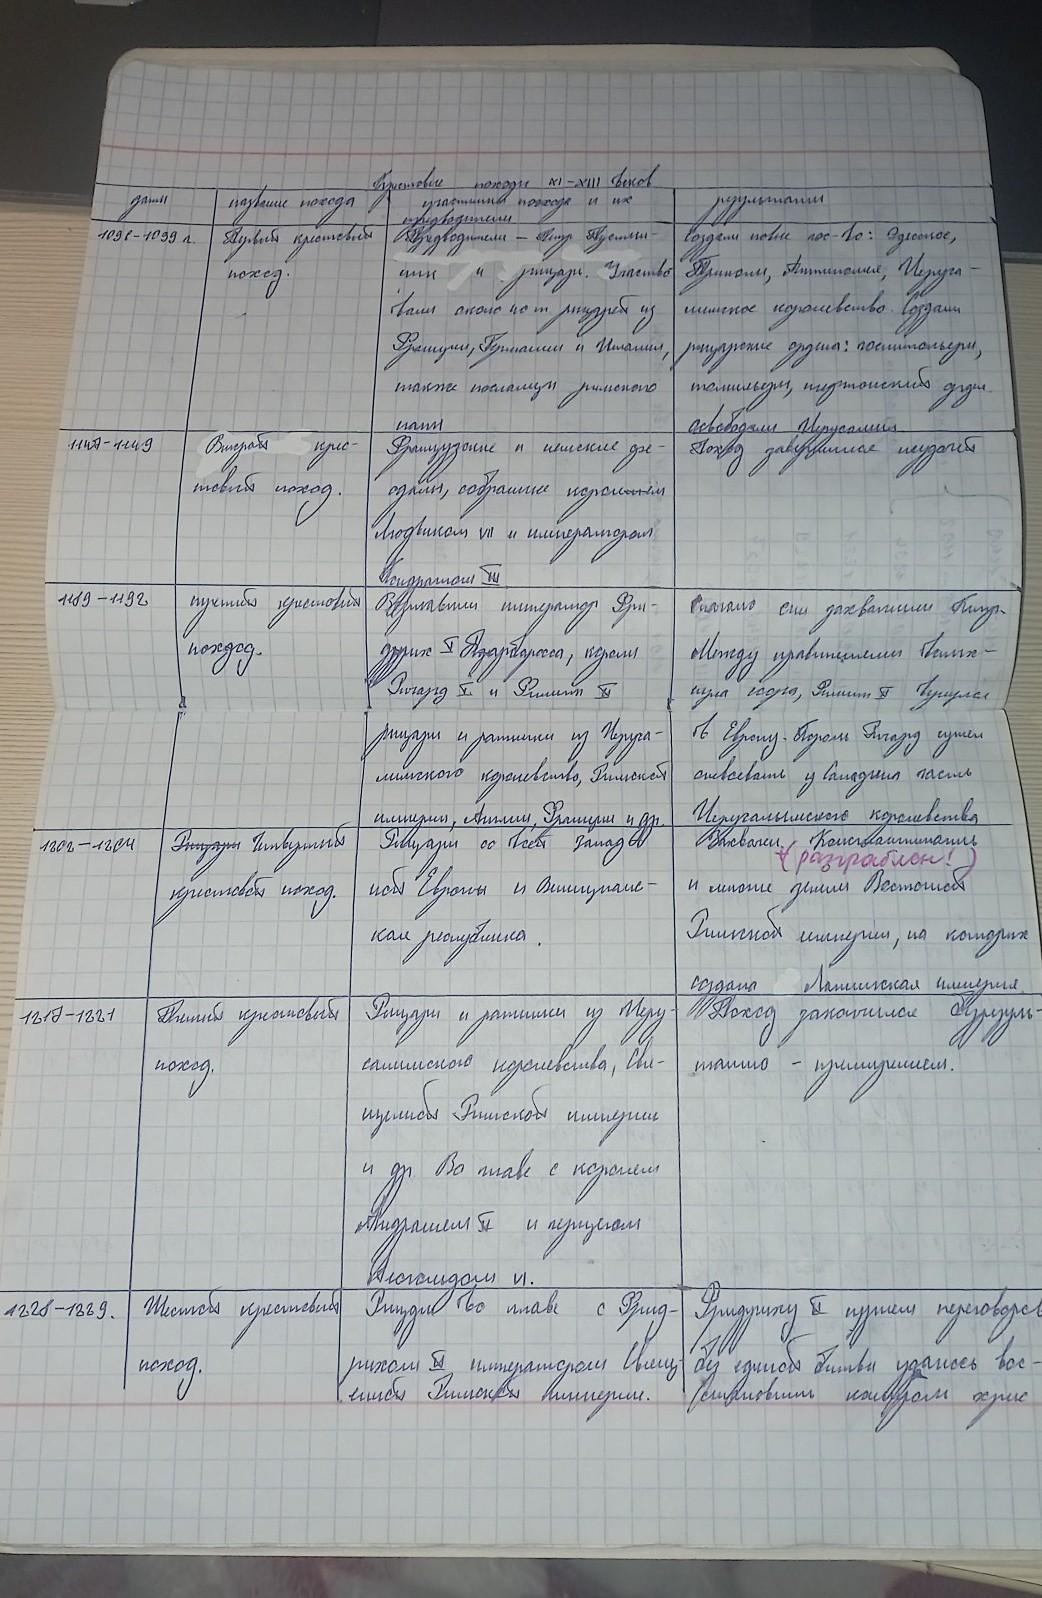 Крестовые походы XI-XIII веков
даты
название похода
участники похода и их
предводители
результаты
1096-1099 г.
Первый крестовый
поход.
Предводители - Петр Пустын-
ник и рыцари. Участво
вали около 40 т рыцарей из
Франции, Германии и Италии,
также посланцы римского
папы
Создали новые гос-во: Эдесское,
Триполи, Антиохия, Иеруса-
лимское королевство. Создали
рыцарские ордена: госпитальеры,
тамплиеры, тевтонский орден.
освободили Иерусалим
1147-1149
Второй крес-
товый поход.
Французские и немецкие фе-
одалы, собранные королем
Людвиком VII и императором
Конрадом III
Поход завершился неудачей
1189-1192
третий крестовый
поход.
Возглавили император Фри-
дрих I Барбаросса, короли
Ричард I и Филипп II
рыцари и ратники из Иеруса-
лимского королевства, Римской
империи, Англии, Франции и др.
Сначала они захватили Кипр.
Между правителями вспых-
нула ссора, Филипп II вернулся
в Европу. Король Ричард сумел
отвоевать у Саладина часть
Иерусалимского королевства
1202-1204
Рыцари Четвертый
крестовый поход.
Рыцари со всей Запад
ной Европы и Венециан-
ская республика.
Захвачен Константинополь
(разграблен!)
и многие земли Восточной
Римской империи, на которых
создана Латинская империя.
1217-1221
Пятый крестовый
поход.
Рыцари и ратники из Иеру-
салимского королевства, Свя-
щенной Римской империи
и др. Во главе с королем
Андрашем II и герцогом
Леопольдом VI.
Поход закончился безрезуль-
татно - примирением.
1228-1229.
Шестой крестовый
поход.
Рыцари во главе с Фрид-
рихом II императором Свящ-
енной Римской империи.
Фридриху II путем переговоров
без единой битвы удалось вос-
становить контроль хрис